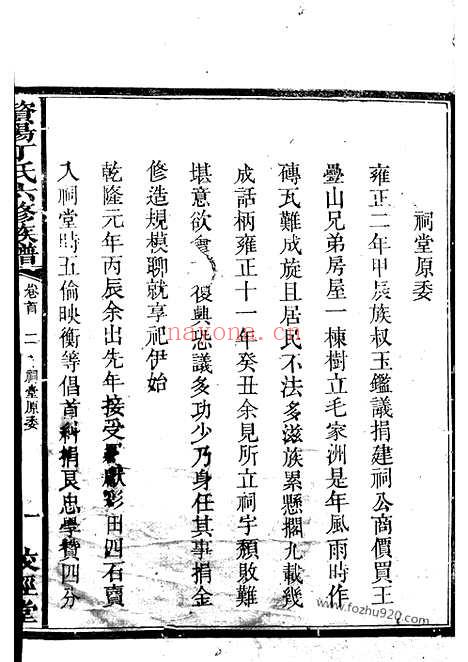 祠堂原委
雍正二年甲辰族叔玉鑑議捐建祠公商價買王
疊山兄弟房屋一棟樹立毛家洲是年風雨時作
磚瓦難成旋且居民不法多滋族累懸擱九載幾
成話柄雍正十一年癸丑余見所立祠宇頹敗難
堪意欲復興恐議多功少乃身任其事捐金
修造規模聊就享祀伊始
乾隆元年丙辰余出先年接受獻彩田四石賣
入祠堂時五倫映衡等倡首科捐良忠學贊四分
資陽丁氏六修族譜
卷首 二 祠堂原委
一 校經堂
nayona.cn
www.fozhu920.com